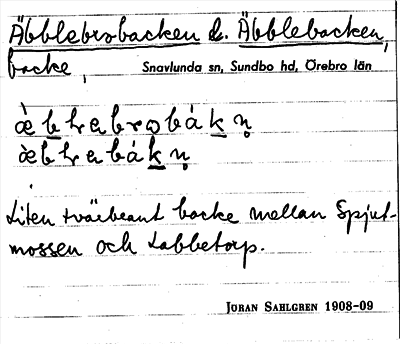 Äbblebrobacken l. Äbblebacken,
backe, Snavlunda sn, Sundbo hd, Örebro län
Liten tvärbrant backe mellan Spjut-
mossen och Labbetorp.
JÖRAN SAHLGREN 1908-09